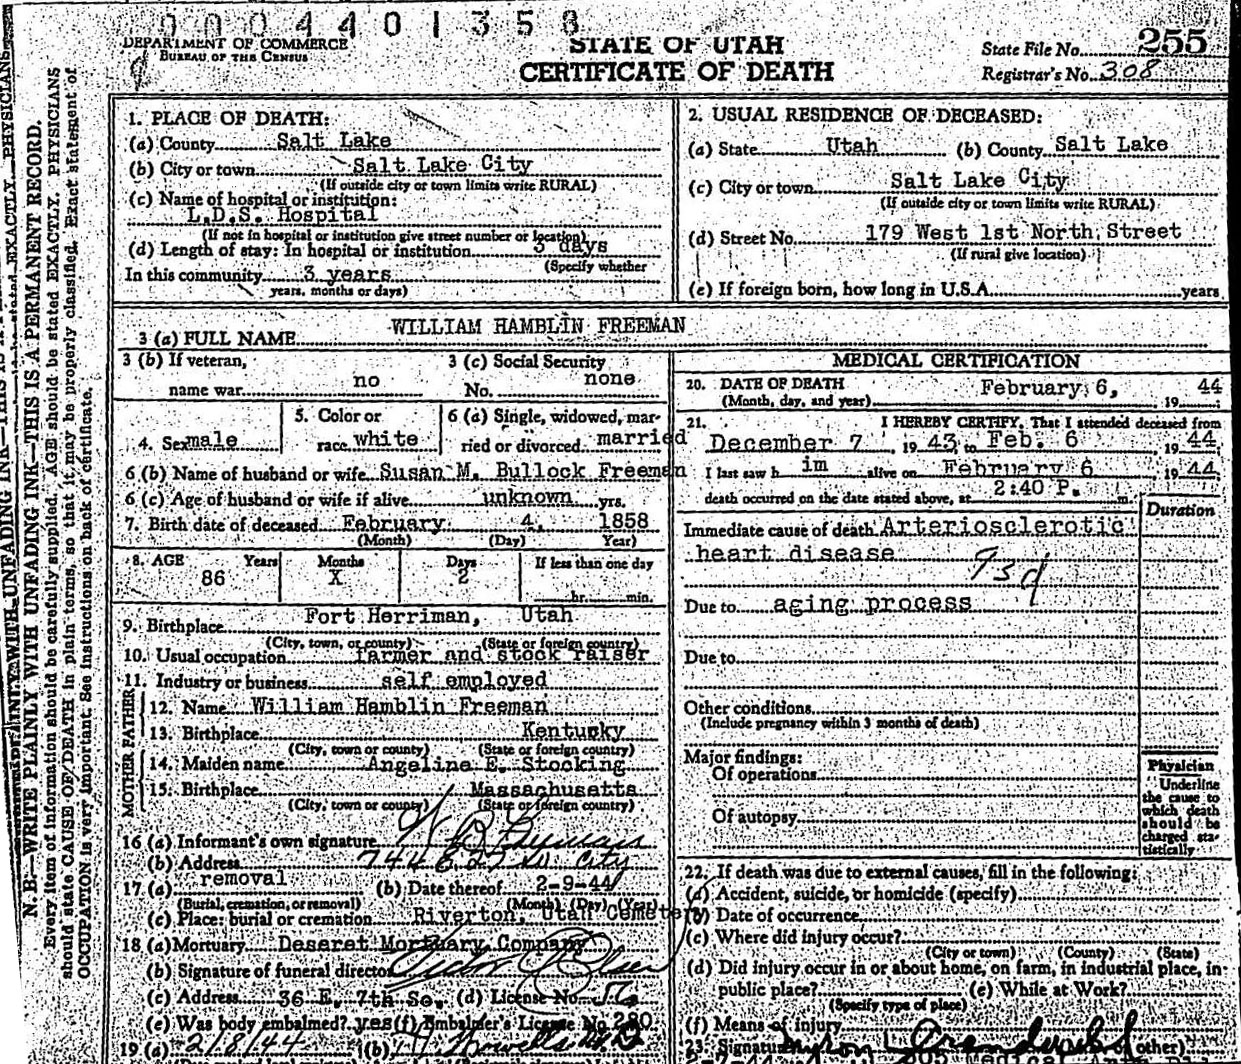 0004401358
DEPARTMENT OF COMMERCE
BUREAU OF THE CENSUS
STATE OF UTAH
CERTIFICATE OF DEATH
State File No. 255
Registrar's No. 308
1. PLACE OF DEATH:
(a) County Salt Lake
(b) City or town Salt Lake City
(If outside city or town limits write RURAL)
(c) Name of hospital or institution:
L.D.S. Hospital
(If not in hospital or institution give street number or location)
(d) Length of stay: In hospital or institution 3 days
(Specify whether
In this community 3 years
years, months or days)
2. USUAL RESIDENCE OF DECEASED:
(a) State Utah (b) County Salt Lake
(c) City or town Salt Lake City
(If outside city or town limits write RURAL)
(d) Street No. 179 West 1st North Street
(If rural give location)
(e) If foreign born, how long in U.S.A. years
3 (a) FULL NAME WILLIAM HAMBLIN FREEMAN
3 (b) If veteran,
name war no
3 (c) Social Security
No. none
4. Sex male
5. Color or
race white
6 (a) Single, widowed, mar-
ried or divorced married
6 (b) Name of husband or wife Susan M. Bullock Freeman
6 (c) Age of husband or wife if alive unknown yrs.
7. Birth date of deceased February 4, 1858
(Month) (Day) Year)
8. AGE Years Months Days If less than one day
86 X 2 hr. min.
9. Birthplace Fort Herriman, Utah
(City, town, or county) (State or foreign country)
10. Usual occupation farmer and stock raiser
11. Industry or business self employed
FATHER
12. Name William Hamblin Freeman
13. Birthplace Kentucky
(City, town or county) (State or foreign country)
MOTHER
14. Maiden name Angeline E. Stocking
15. Birthplace Massachusetts
(City, town or county) (State or foreign country)
16 (a) Informant's own signature
(b) Address City
17 (a) removal (b) Date thereof 2-9-44
(Burial, cremation, or removal) (Month) (Day) (Year)
(c) Place: burial or cremation Riverton, Utah Cemetery
18 (a) Mortuary Deseret Mortuary Company
(b) Signature of funeral director
(c) Address 36 E. 7th So. (d) License No.
(e) Was body embalmed? yes (f) Embalmer's License No. 280
19 (a) 2/8/44 (b)
MEDICAL CERTIFICATION
20. DATE OF DEATH February 6, 19 44
(Month, day, and year)
21. I HEREBY CERTIFY, That I attended deceased from
December 7 19 43 to Feb. 6 19 44
I last saw h im alive on February 6 19 44
death occurred on the date stated above, at 2:40 P. m.
Duration
Immediate cause of death Arteriosclerotic
heart disease
93d
Due to aging process
Due to
Other conditions
(Include pregnancy within 3 months of death)
Major findings:
Of operations
Of autopsy
Physician
Underline
the cause to
which death
should be
charged sta-
tistically
22. If death was due to external causes, fill in the following:
(a) Accident, suicide, or homicide (specify)
(b) Date of occurrence
(c) Where did injury occur?
(City or town) (County) (State)
(d) Did injury occur in or about home, on farm, in industrial place, in
public place? (e) While at Work?
(Specify type of place)
(f) Means of injury
23. Signature other)
N. B.—WRITE PLAINLY WITH UNFADING INK—THIS IS A PERMANENT RECORD.
Every item of information should be carefully supplied. AGE should be stated EXACTLY. PHYSICIANS
should state CAUSE OF DEATH in plain terms, so that it may be properly classified. Exact statement of
OCCUPATION is very important. See instructions on back of certificate.